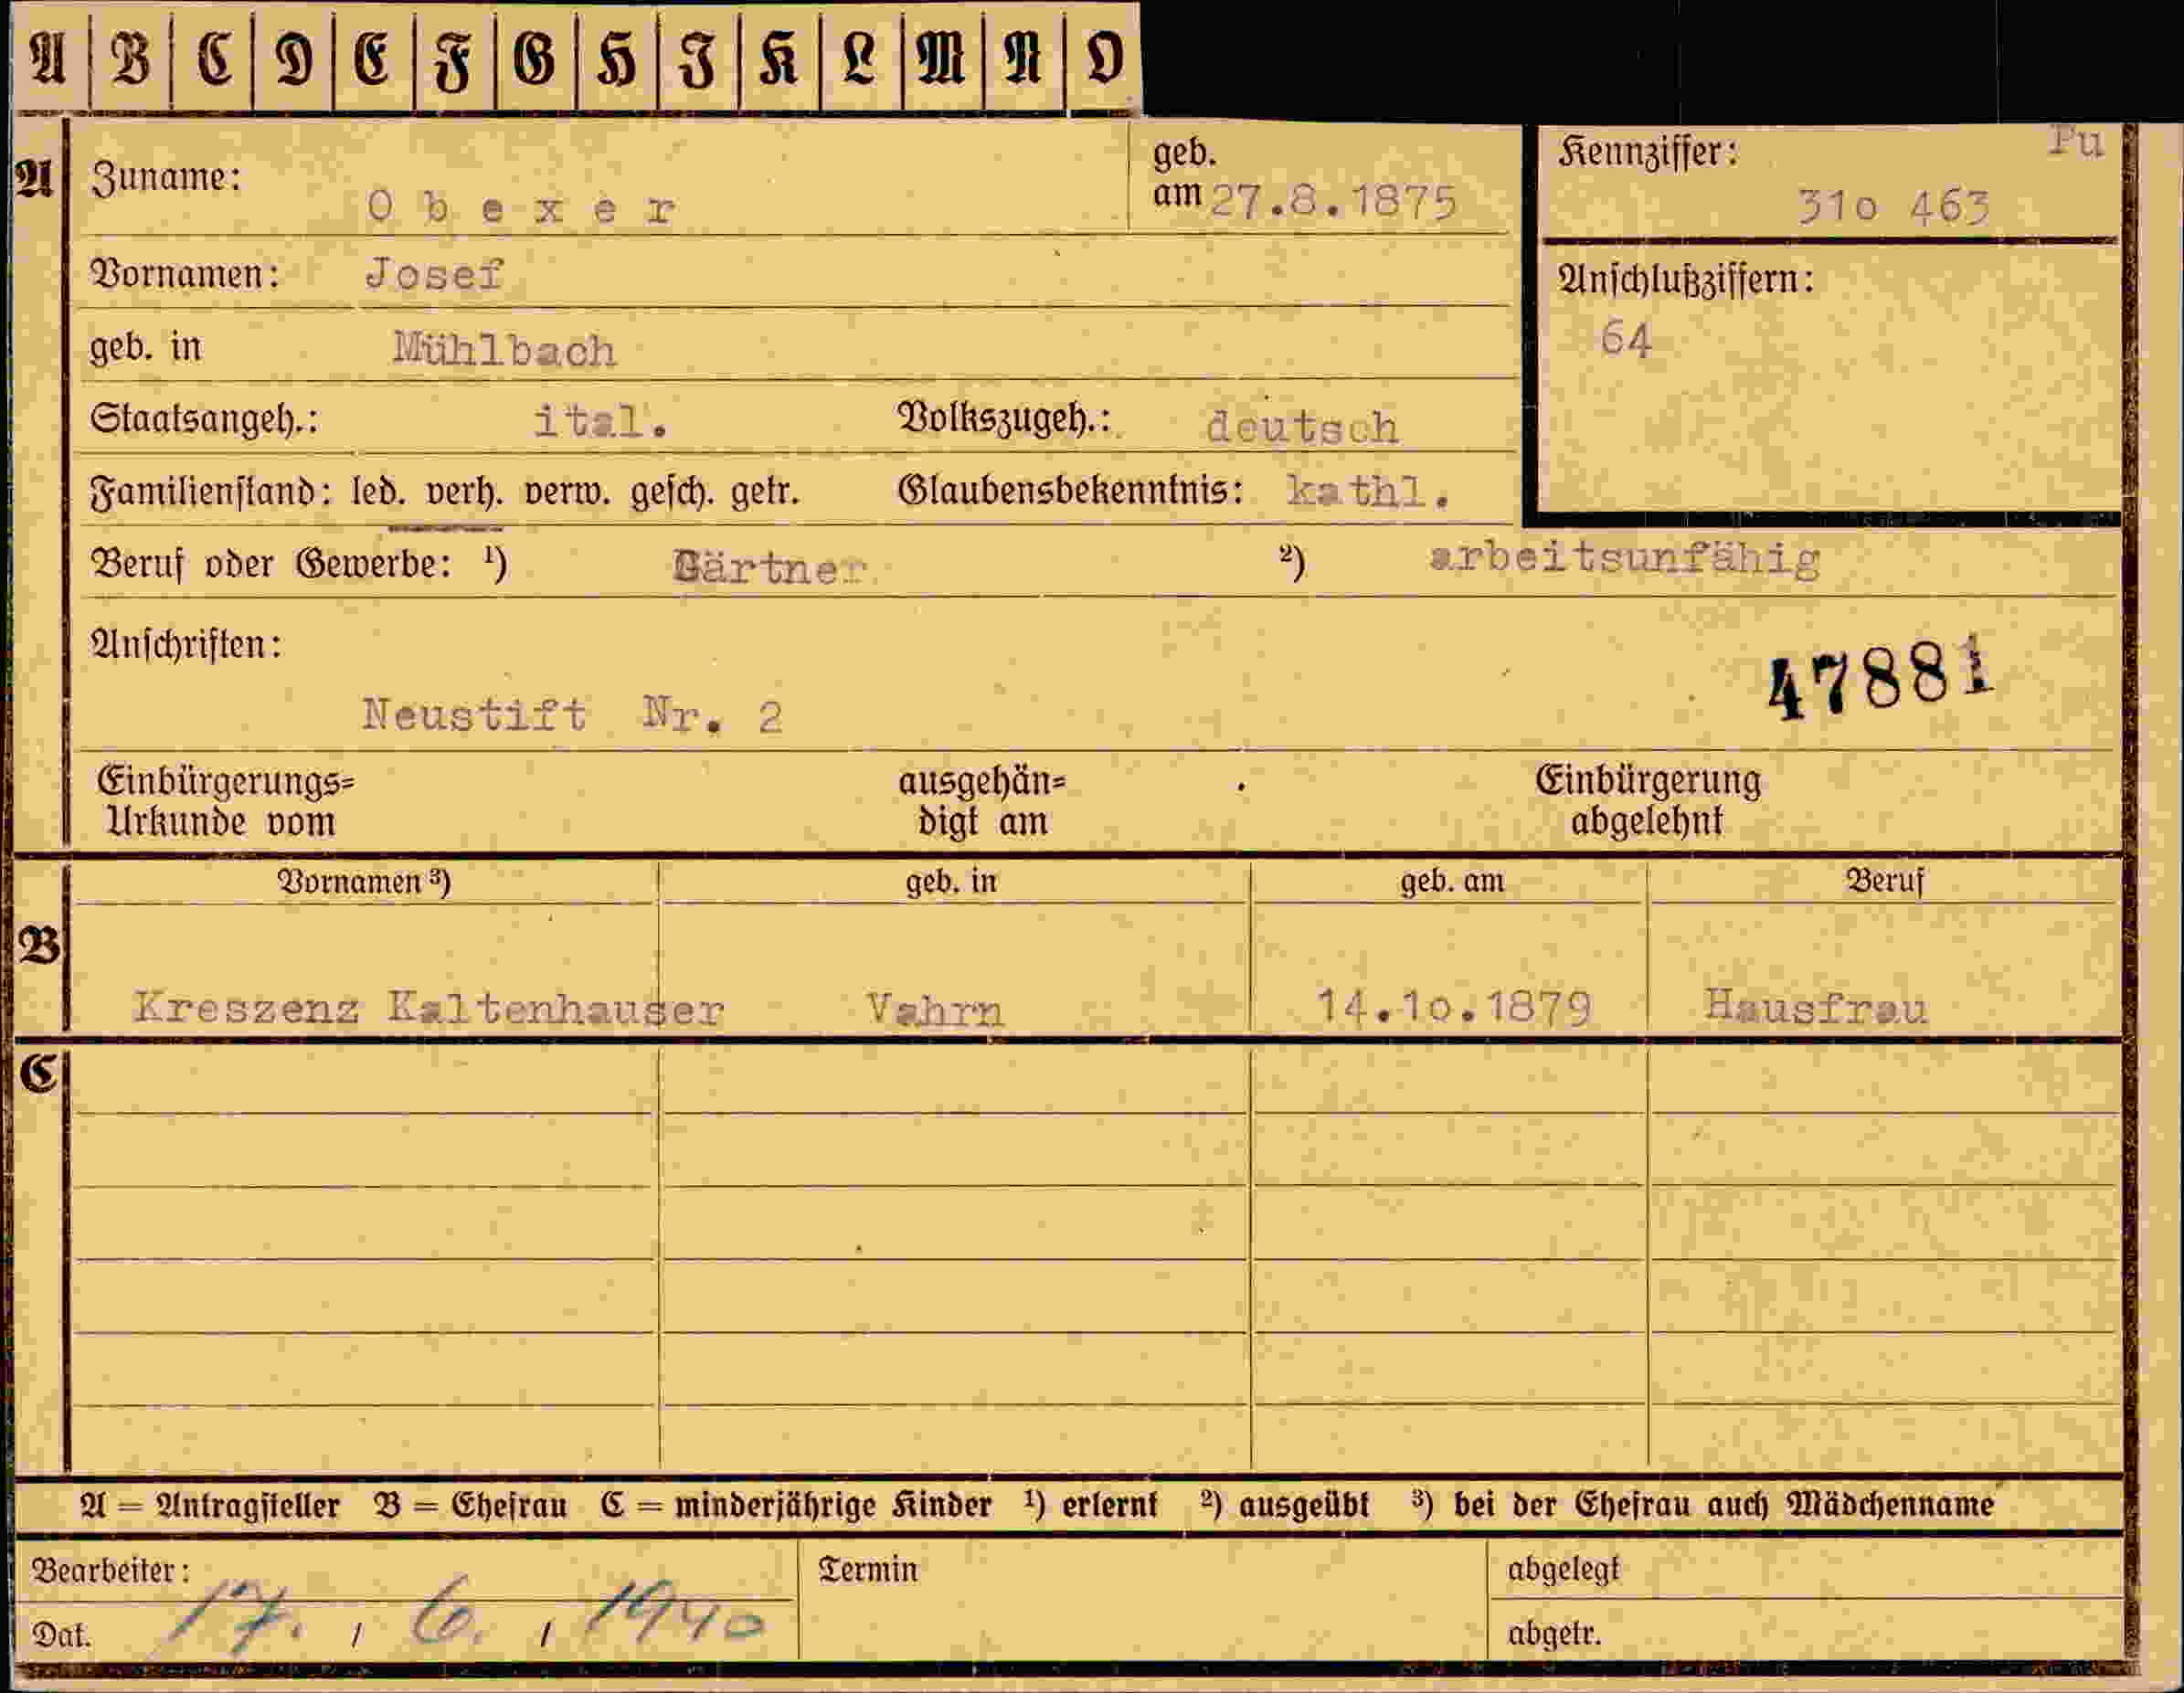 A B C D E F G H J K L M N O
A Zuname: Obexer geb. am 27.8.1875 Kennziffer: Pu 31o 463
Vornamen: Josef Anschlußziffern:
64
geb. in Mühlbach
Staatsangeh.: ital. Volkszugeh.: deutsch
Familienstand: led. verh. verw. gesch. getr. Glaubensbekenntnis: kathl.
Beruf oder Gewerbe: ¹) Gärtner ²) arbeitsunfähig
Anschriften:
47881
Neustift Nr. 2
Einbürgerungs= ausgehän= Einbürgerung
Urkunde vom digt am abgelehnt
Vornamen ³) geb. in geb. am Beruf
B
Kreszenz Kaltenhauser Vahrn 14.1o.1879 Hausfrau
C
A = Antragsteller B = Ehefrau C = minderjährige Kinder ¹) erlernt ²) ausgeübt ³) bei der Ehefrau auch Mädchenname
Bearbeiter: Termin abgelegt
Dat. 17. / 6. / 1940 abgetr.